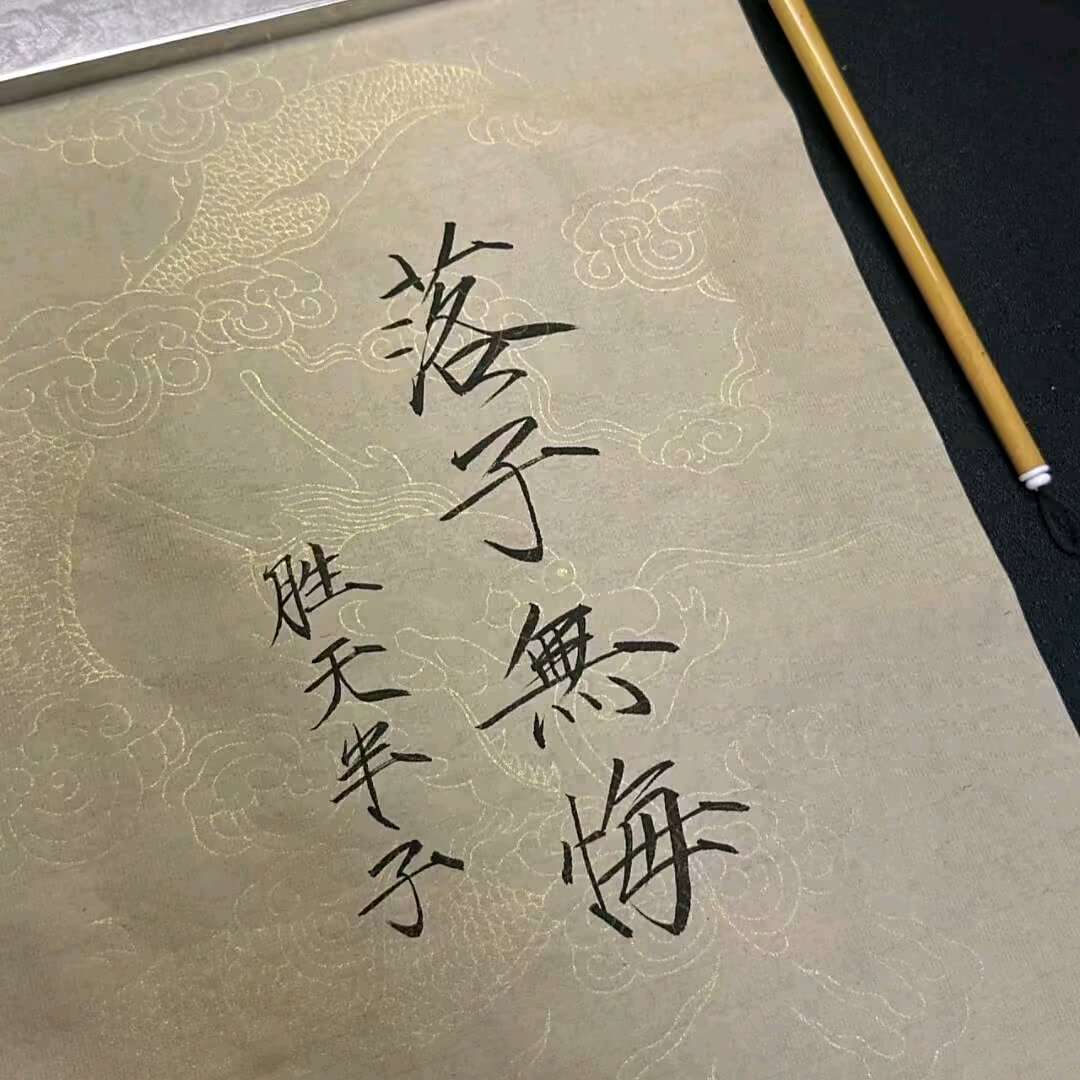 落子無悔
胜天半子